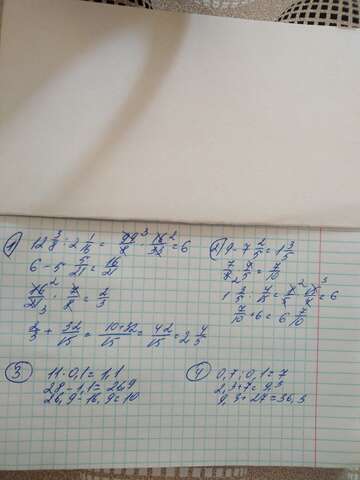 1) 12 3/8 : 2 1/16 = 99/8 · 16/33 = 6
6 - 5 5/21 = 16/21
16/21 · 7/8 = 2/3
2/3 + 32/15 = 10+32/15 = 42/15 = 2 4/5
2) 9 - 7 2/5 = 1 3/5
7/8 · 4/5 = 7/10
7/10 + 6 = 6 7/10
3) 11 · 0,1 = 1,1
28 - 1,1 = 26,9
26,9 - 16,9 = 10
4) 0,7 : 0,1 = 7
2,3 + 7 = 9,3
9,3 + 27 = 36,3